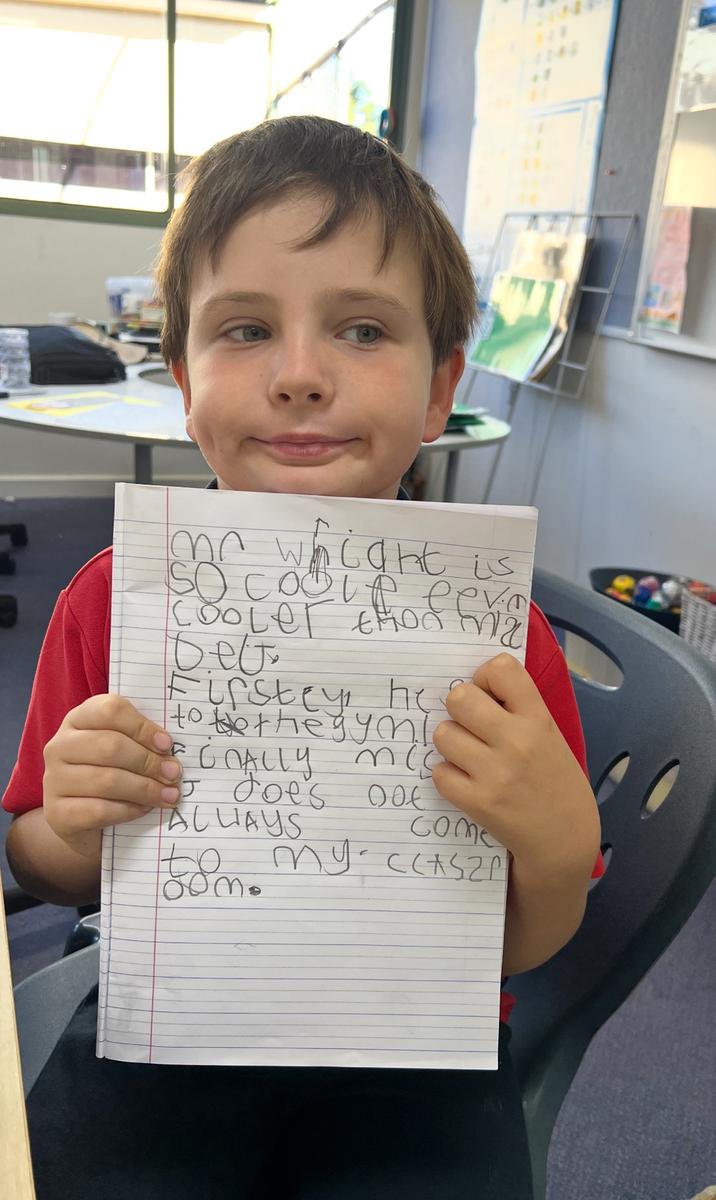 mr whight is
so coole eevin
cooler than miss
Bell.
Firstly, he
to the gym!
Finally miss
J does not
ALWAYS come
to my classr
oom.